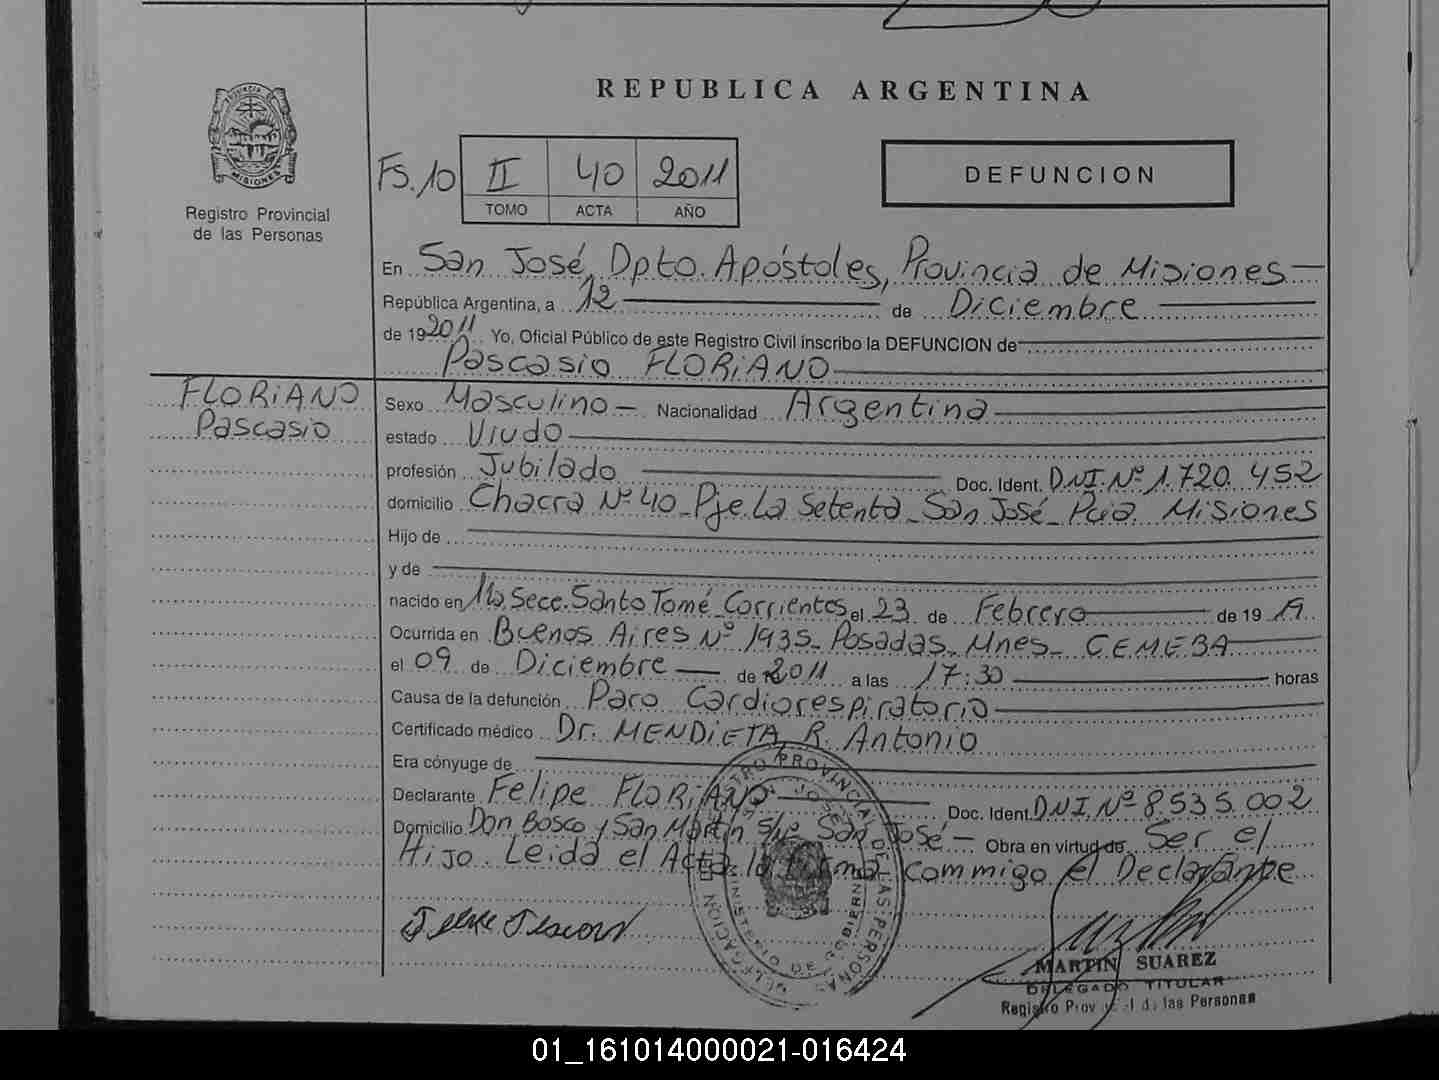 REPUBLICA ARGENTINA
PROVINCIA DE
MISIONES
Registro Provincial
de las Personas
Fs. 10
II
40
2011
TOMO
ACTA
AÑO
DEFUNCION
En San José, Dpto. Apóstoles, Provincia de Misiones
República Argentina, a 12 de Diciembre
de 19 2011 Yo, Oficial Público de este Registro Civil inscribo la DEFUNCION de
Pascasio FLORIANO
FLORIANO
Pascasio
Sexo Masculino Nacionalidad Argentina
estado Viudo
profesión Jubilado Doc. Ident. DNI. Nº 1.720.452
domicilio Chacra Nº 40 - Pje. La Setenta - San José - Pcia. Misiones
Hijo de
y de
nacido en 1ª Secc. Santo Tomé Corrientes el 23 de Febrero de 19 19
Ocurrida en Buenos Aires Nº 1935 - Posadas - Mnes - C.E.M.E.B.A
el 09 de Diciembre de 2011 a las 17:30 horas
Causa de la defunción Paro Cardiorespiratorio
Certificado médico Dr. MENDIETA, R. Antonio
Era cónyuge de
Declarante Felipe FLORIANO Doc. Ident. DNI. Nº 8.535.002
Domicilio Don Bosco y San Martin s/nº San José - Obra en virtud de Ser el
Hijo. Leida el Acta la firma commigo el Declarante
REGISTRO PROVINCIAL DE LAS PERSONAS
DELEGACION
SAN JOSE
MINISTERIO DE GOBIERNO
MARTIN SUAREZ
DELEGADO TITULAR
Registro Provincial de las Personas
01_161014000021-016424